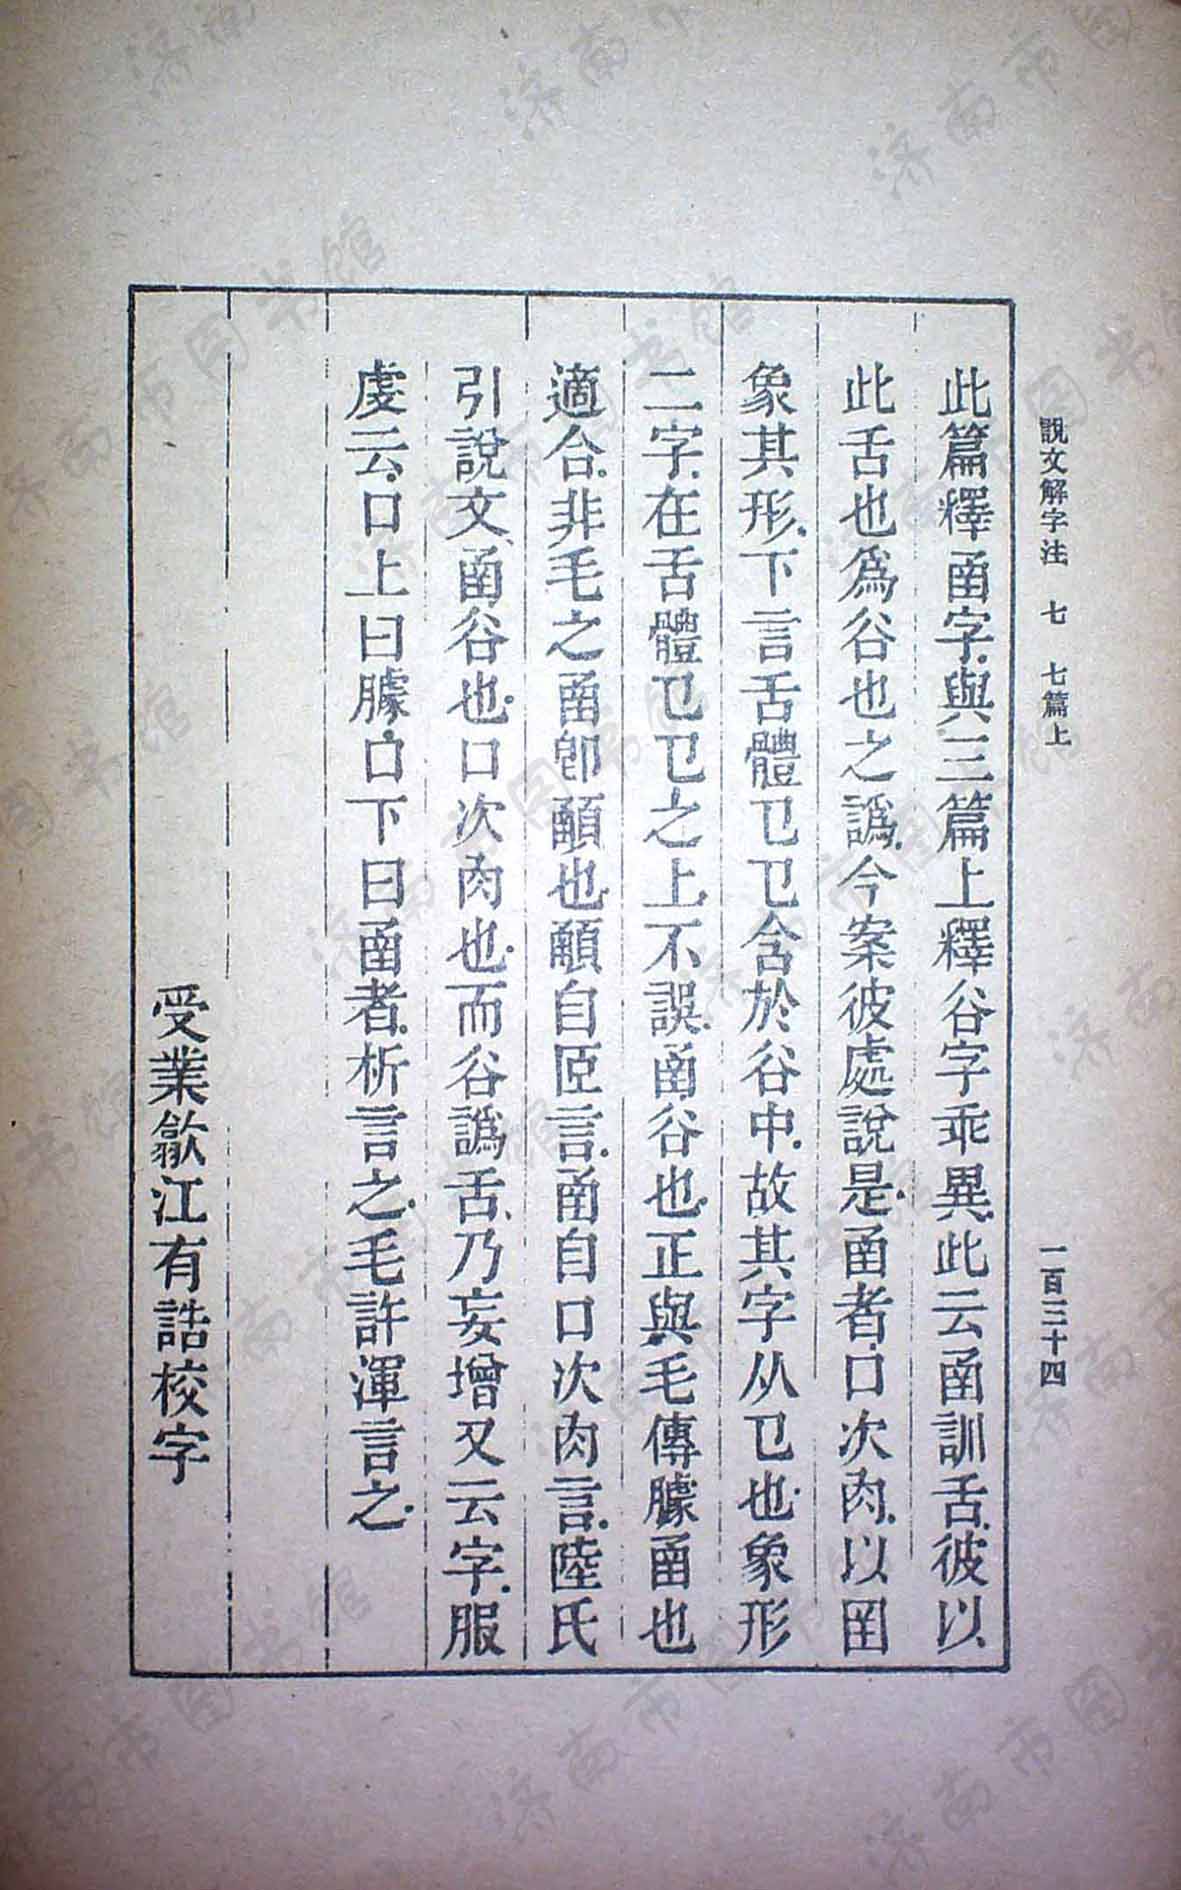 說文解字注 七 七篇上 一百三十四
此篇釋圅字、與三篇上釋谷字乖異、此云圅訓舌、彼以
此舌也爲谷也之譌、今案彼處說是、圅者、口次肉、以
象其形、下言舌體㔾㔾含於谷中、故其字从㔾也、象形
二字、在舌體㔾㔾之上、不誤、圅谷也、正與毛傳臄圅也
適合、非毛之圅卽顄也、顄自𦣞言、圅自口次肉言、陸氏
引說文、圅谷也、口次肉也、而谷譌舌、乃妄增又云字、服
虔云、口上曰臄、口下曰圅者、析言之、毛許渾言之、
受業歙江有誥校字
济南市图书馆